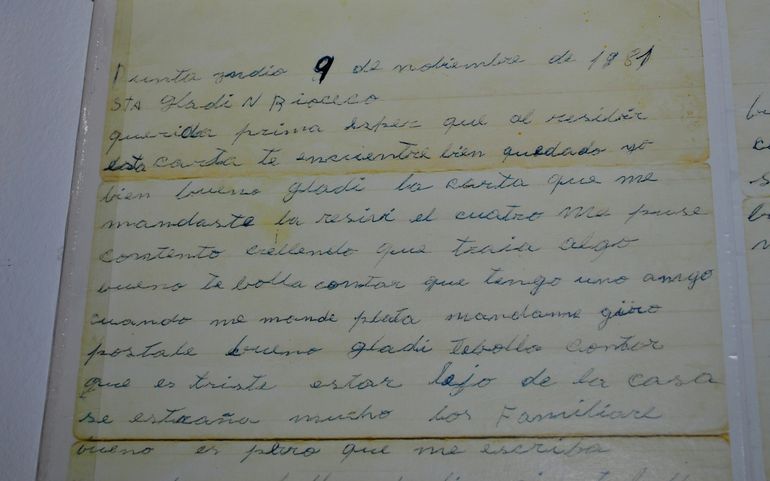 Punta yndio 9 de noviembre de 1981
Sta Gladi N Rioceco
querida prima esper que al residir
esta carta te encuentre bien quedado yo
bien bueno gladi la carta que me
mandaste la resivi el cuatro me puse
contento crellendo que traia algo
bueno te bolla contar que tengo uno amigo
cuando me mande plata mandame giro
postale bueno gladi tebolla contar
que es triste estar lejo de la casa
se estraña mucho los Familiare
bueno es pero que me escriba